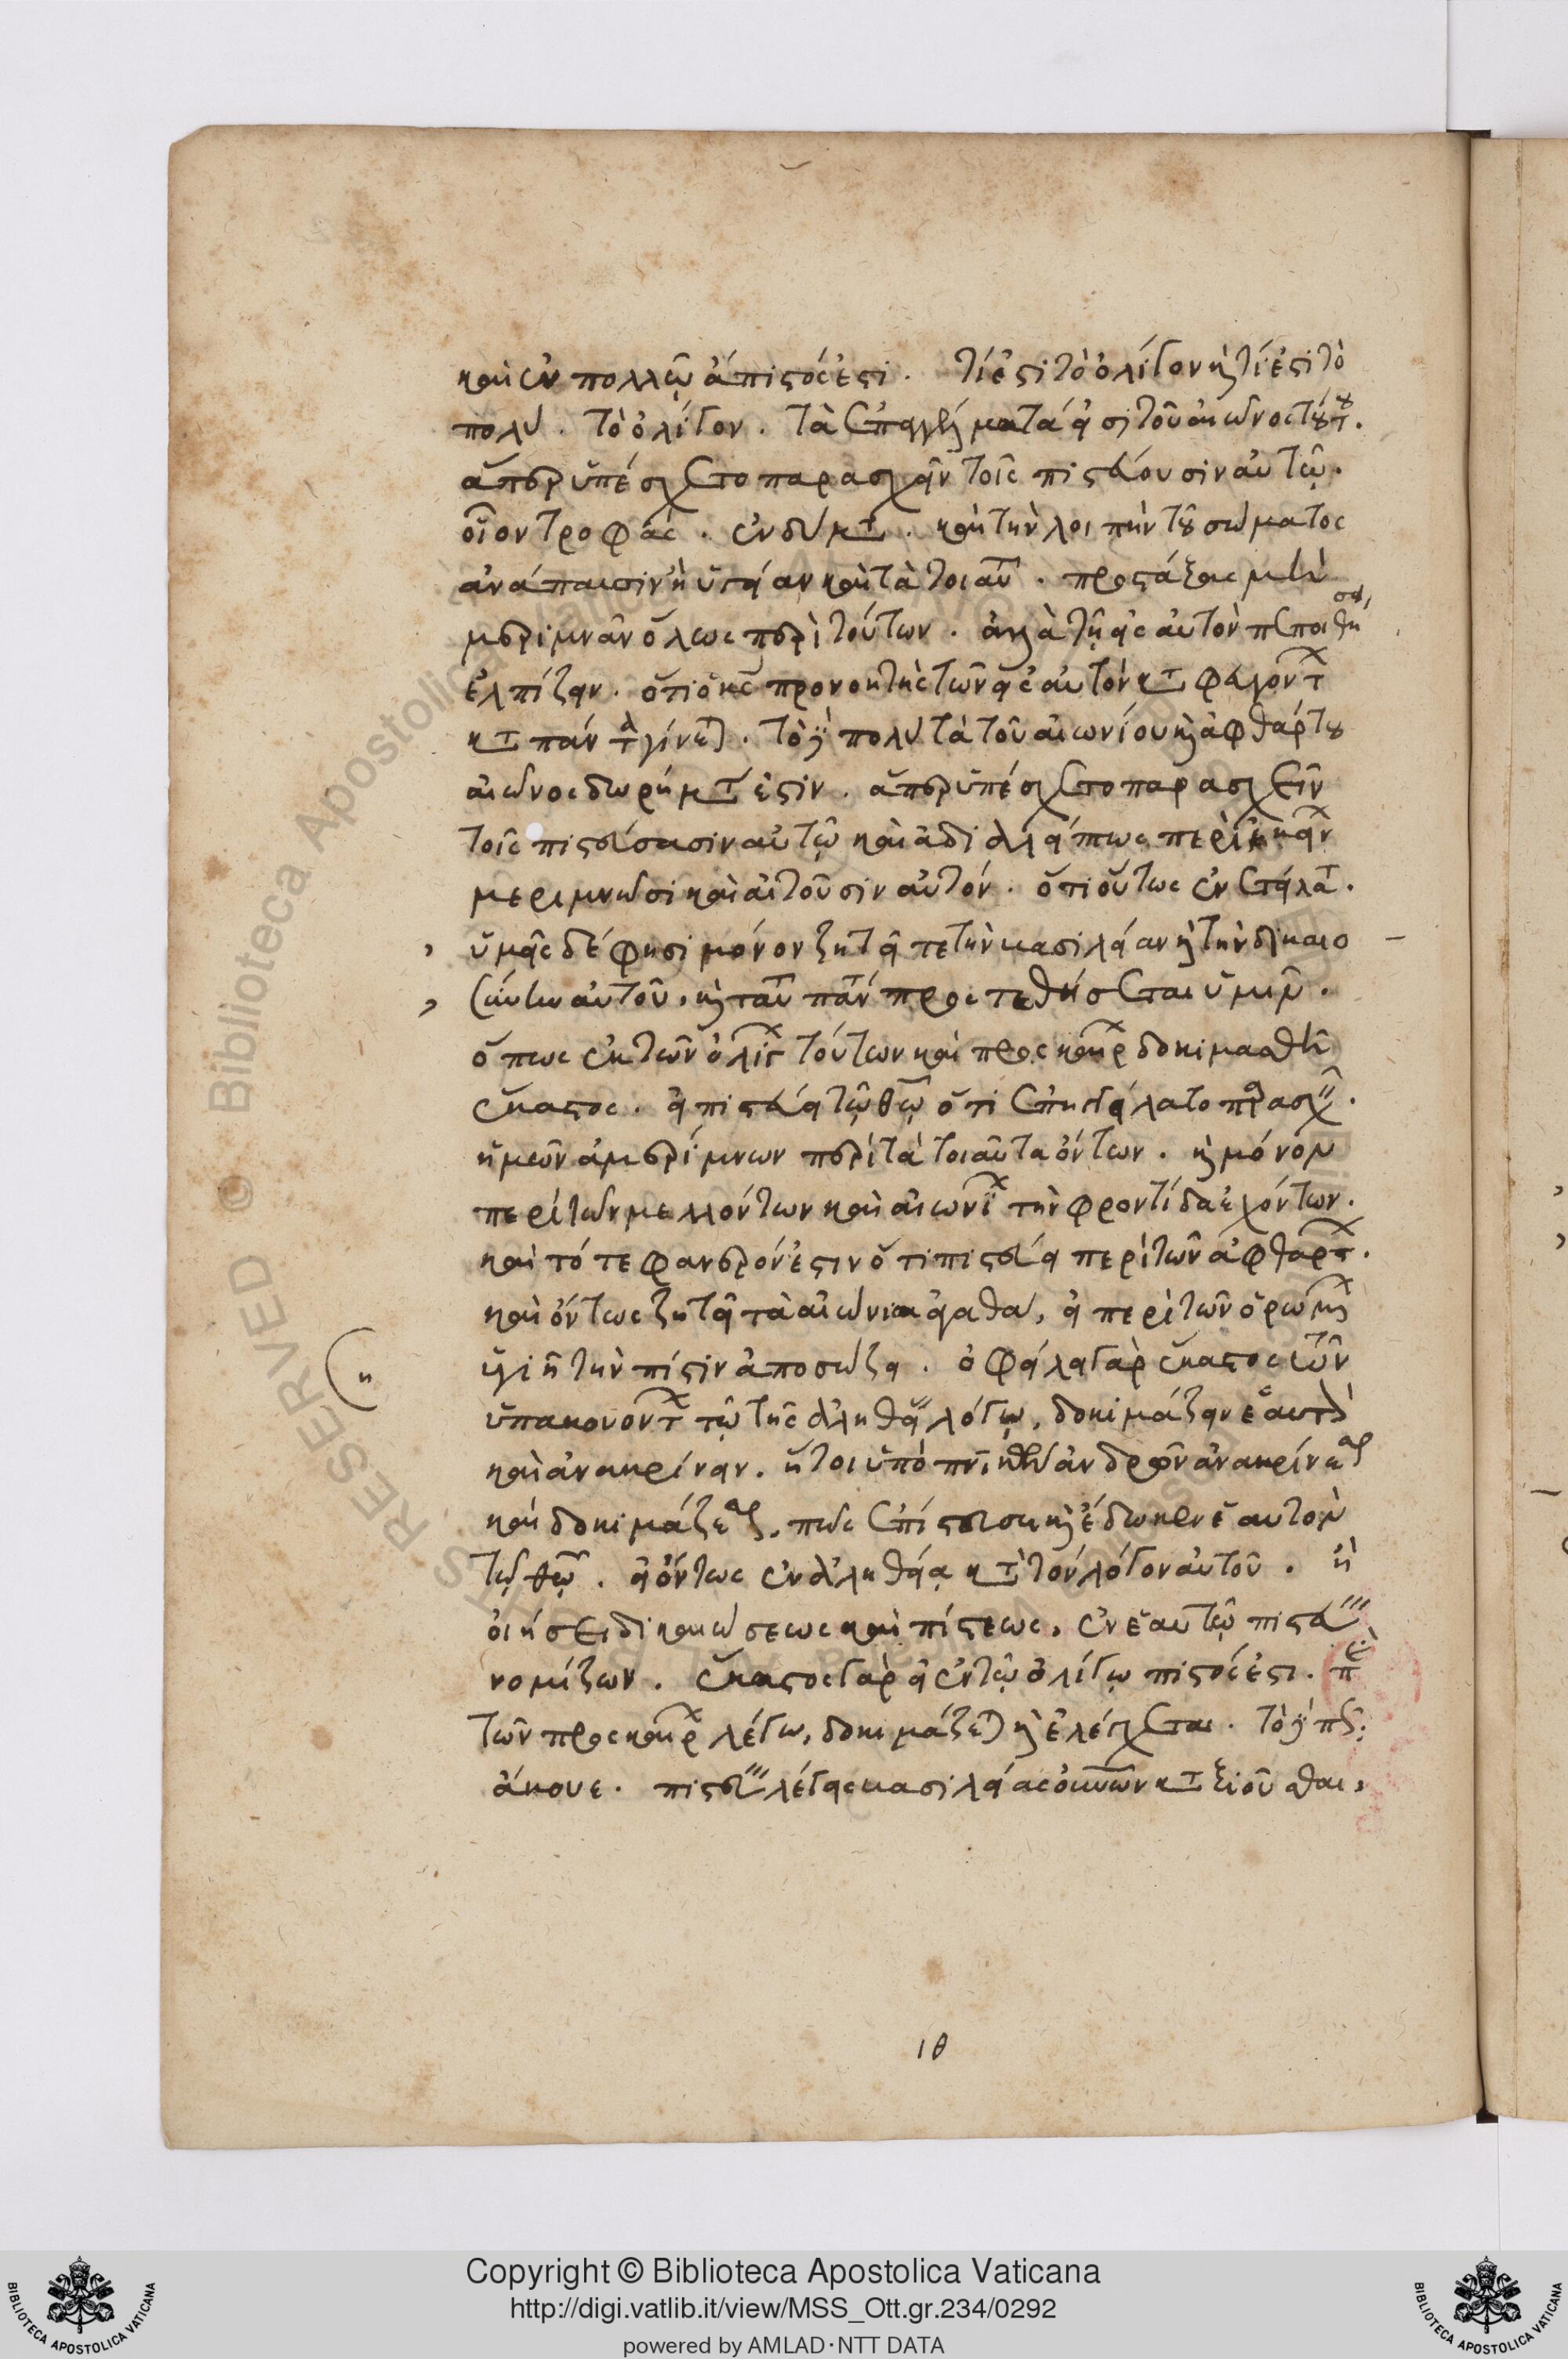 καὶ ἐν πολλῷ ἄπιστός ἐστι. τί ἐστι τὸ ὀλίγον κ τί ἐστι τὸ
πολύ. τὸ ὀλίγον. τὰ ἐπαγγέλματά εἰσι τοῦ αἰῶνος τούτου.
ἅπερ ὑπέσχετο παρασχεῖν τοῖς πιστεύουσιν αὐτῷ.
οἷον τροφάς. ἐνδύματα. καὶ τὴν λοιπὴν τοῦ σώματος
ἀνάπαυσιν ἢ ὑγείαν καὶ τὰ τοιαῦτα. προστάξας μὴ
μεριμνᾶν ὅλως περὶ τούτων. ἀλλὰ τῇ εἰς αὐτὸν πεποιθήσει
ἐλπίζειν. ὅτι ὁ κς προνοητὴς τῶν εἰς αὐτὸν καταφευγόντων
κατὰ πάντα γίνεται. τὸ δὲ πολὺ τὰ τοῦ αἰωνίου κ ἀφθάρτου
αἰῶνος δωρήματά ἐστιν. ἅπερ ὑπέσχετο παρασχεῖν
τοῖς πιστεύσασιν αὐτῷ καὶ ἀδιαλείπτως περὶ ἐκείνων
μεριμνῶσι καὶ αἰτοῦσιν αὐτόν. ὅτι οὕτως ἐνετείλατο.
ὑμεῖς δέ φησι μόνον ζητεῖτε τὴν βασιλείαν κ τὴν δικαιο
σύνην αὐτοῦ, κ ταῦτα πάντα προστεθήσεται ὑμῖν.
ὅπως ἐκ τῶν ὀλίγων τούτων καὶ προσκαίρων δοκιμασθῇ
ἕκαστος. εἰ πιστεύει τῷ θῷ ὅτι ἐπηγγείλατο παρασχεῖν.
ἡμῶν ἀμερίμνων περὶ τὰ τοιαῦτα ὄντων. κ μόνον
περὶ τῶν μελλόντων καὶ αἰωνίων τὴν φροντίδα ἐχόντων.
καὶ τότε φανερόν ἐστιν ὅτι πιστεύει περὶ τῶν ἀφθάρτων.
καὶ ὄντως ζητεῖ τὰ αἰώνια ἀγαθά, εἰ περὶ τῶν ὁρωμένων
ὑγιῆ τὴν πίστιν ἀποσώζει. ὀφείλει γὰρ ἕκαστος τῶν
ὑπακουόντων τῷ τῆς ἀληθείας λόγῳ, δοκιμάζειν ἑαυτὸν
καὶ ἀνακρίνειν. ἤτοι ὑπὸ πνικῶν ἀνδρῶν ἀνακρίνεσθαι
καὶ δοκιμάζεσθαι, πῶς ἐπίστευσε κ ἔδωκεν ἑαυτὸν
τῷ θῷ. εἰ ὄντως ἐν ἀληθείᾳ κατὰ τὸν λόγον αὐτοῦ. ἢ
οἰήσει δικαιώσεως καὶ πίστεως, ἐν ἑαυτῷ πιστεύειν
νομίζων. ἕκαστος γὰρ εἰ ἐν τῷ ὀλίγῳ πιστός ἐστι. περὶ
τῶν προσκαίρων λέγω, δοκιμάζεται κ ἐλέγχεται. τὸ δὲ πῶς.
ἄκουε. πιστεύειν λέγεις βασιλείας οὐνῶν καταξιοῦσθαι,
η
ιθ
Copyright © Biblioteca Apostolica Vaticana
http://digi.vatlib.it/view/MSS_Ott.gr.234/0292
powered by AMLAD·NTT DATA